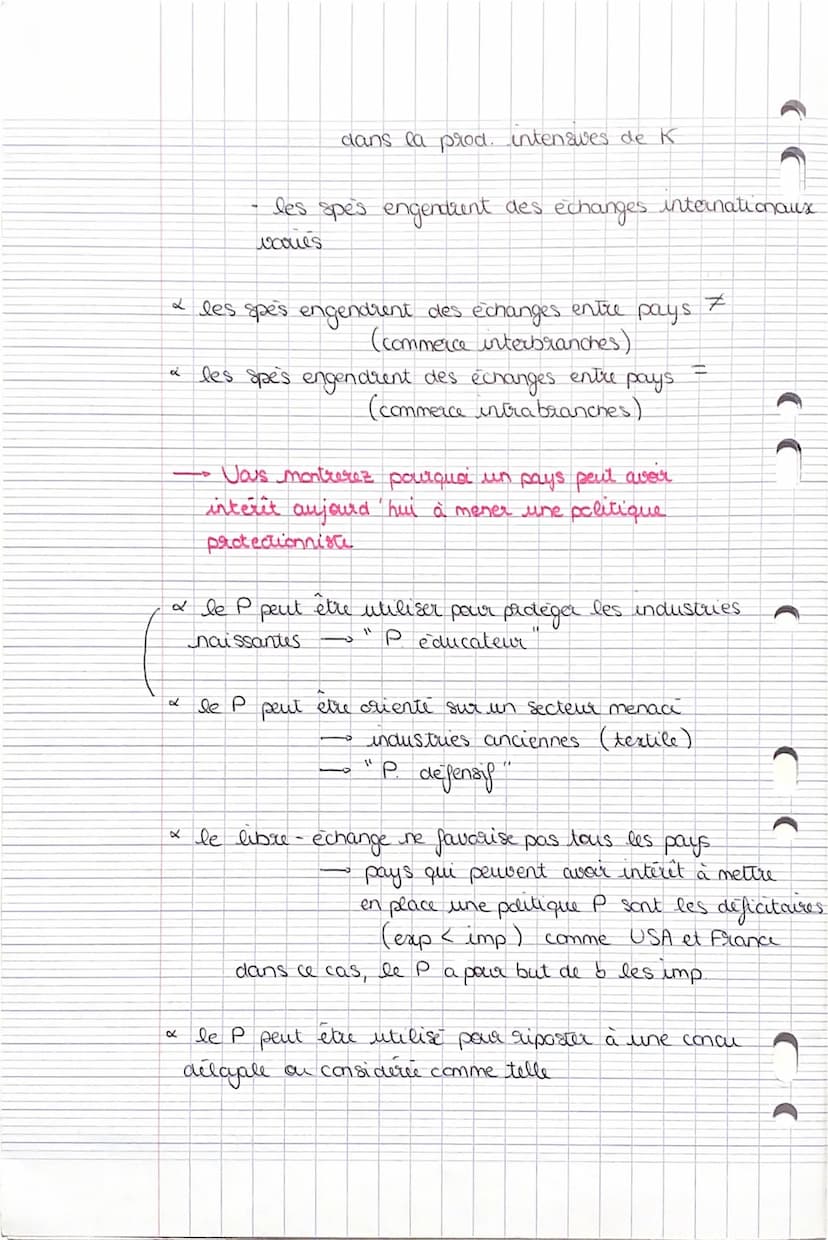 dans la prod. intensives de K
- les spés engendrent des échanges internationaux
variés
α les spés engendrent des échanges entre pays ≠
(commerce interbranches)
α les spés engendrent des échanges entre pays =
(commerce intrabranches)
→ Vous montrerez pourquoi un pays peut avoir
intérêt aujourd'hui à mener une politique
protectionniste
α le P peut être utiliser pour protéger les industries
naissantes → "P. éducateur"
α le P peut être orienté sur un secteur menacé
→ industries anciennes (textile)
→ "P. défensif"
α le libre-échange ne favorise pas tous les pays
→ pays qui peuvent avoir intérêt à mettre
en place une politique P sont les déficitaires
(exp < imp) comme USA et France
dans ce cas, le P a pour but de b les imp.
α le P peut être utilisé pour riposter à une concu
déloyale ou considérée comme telle